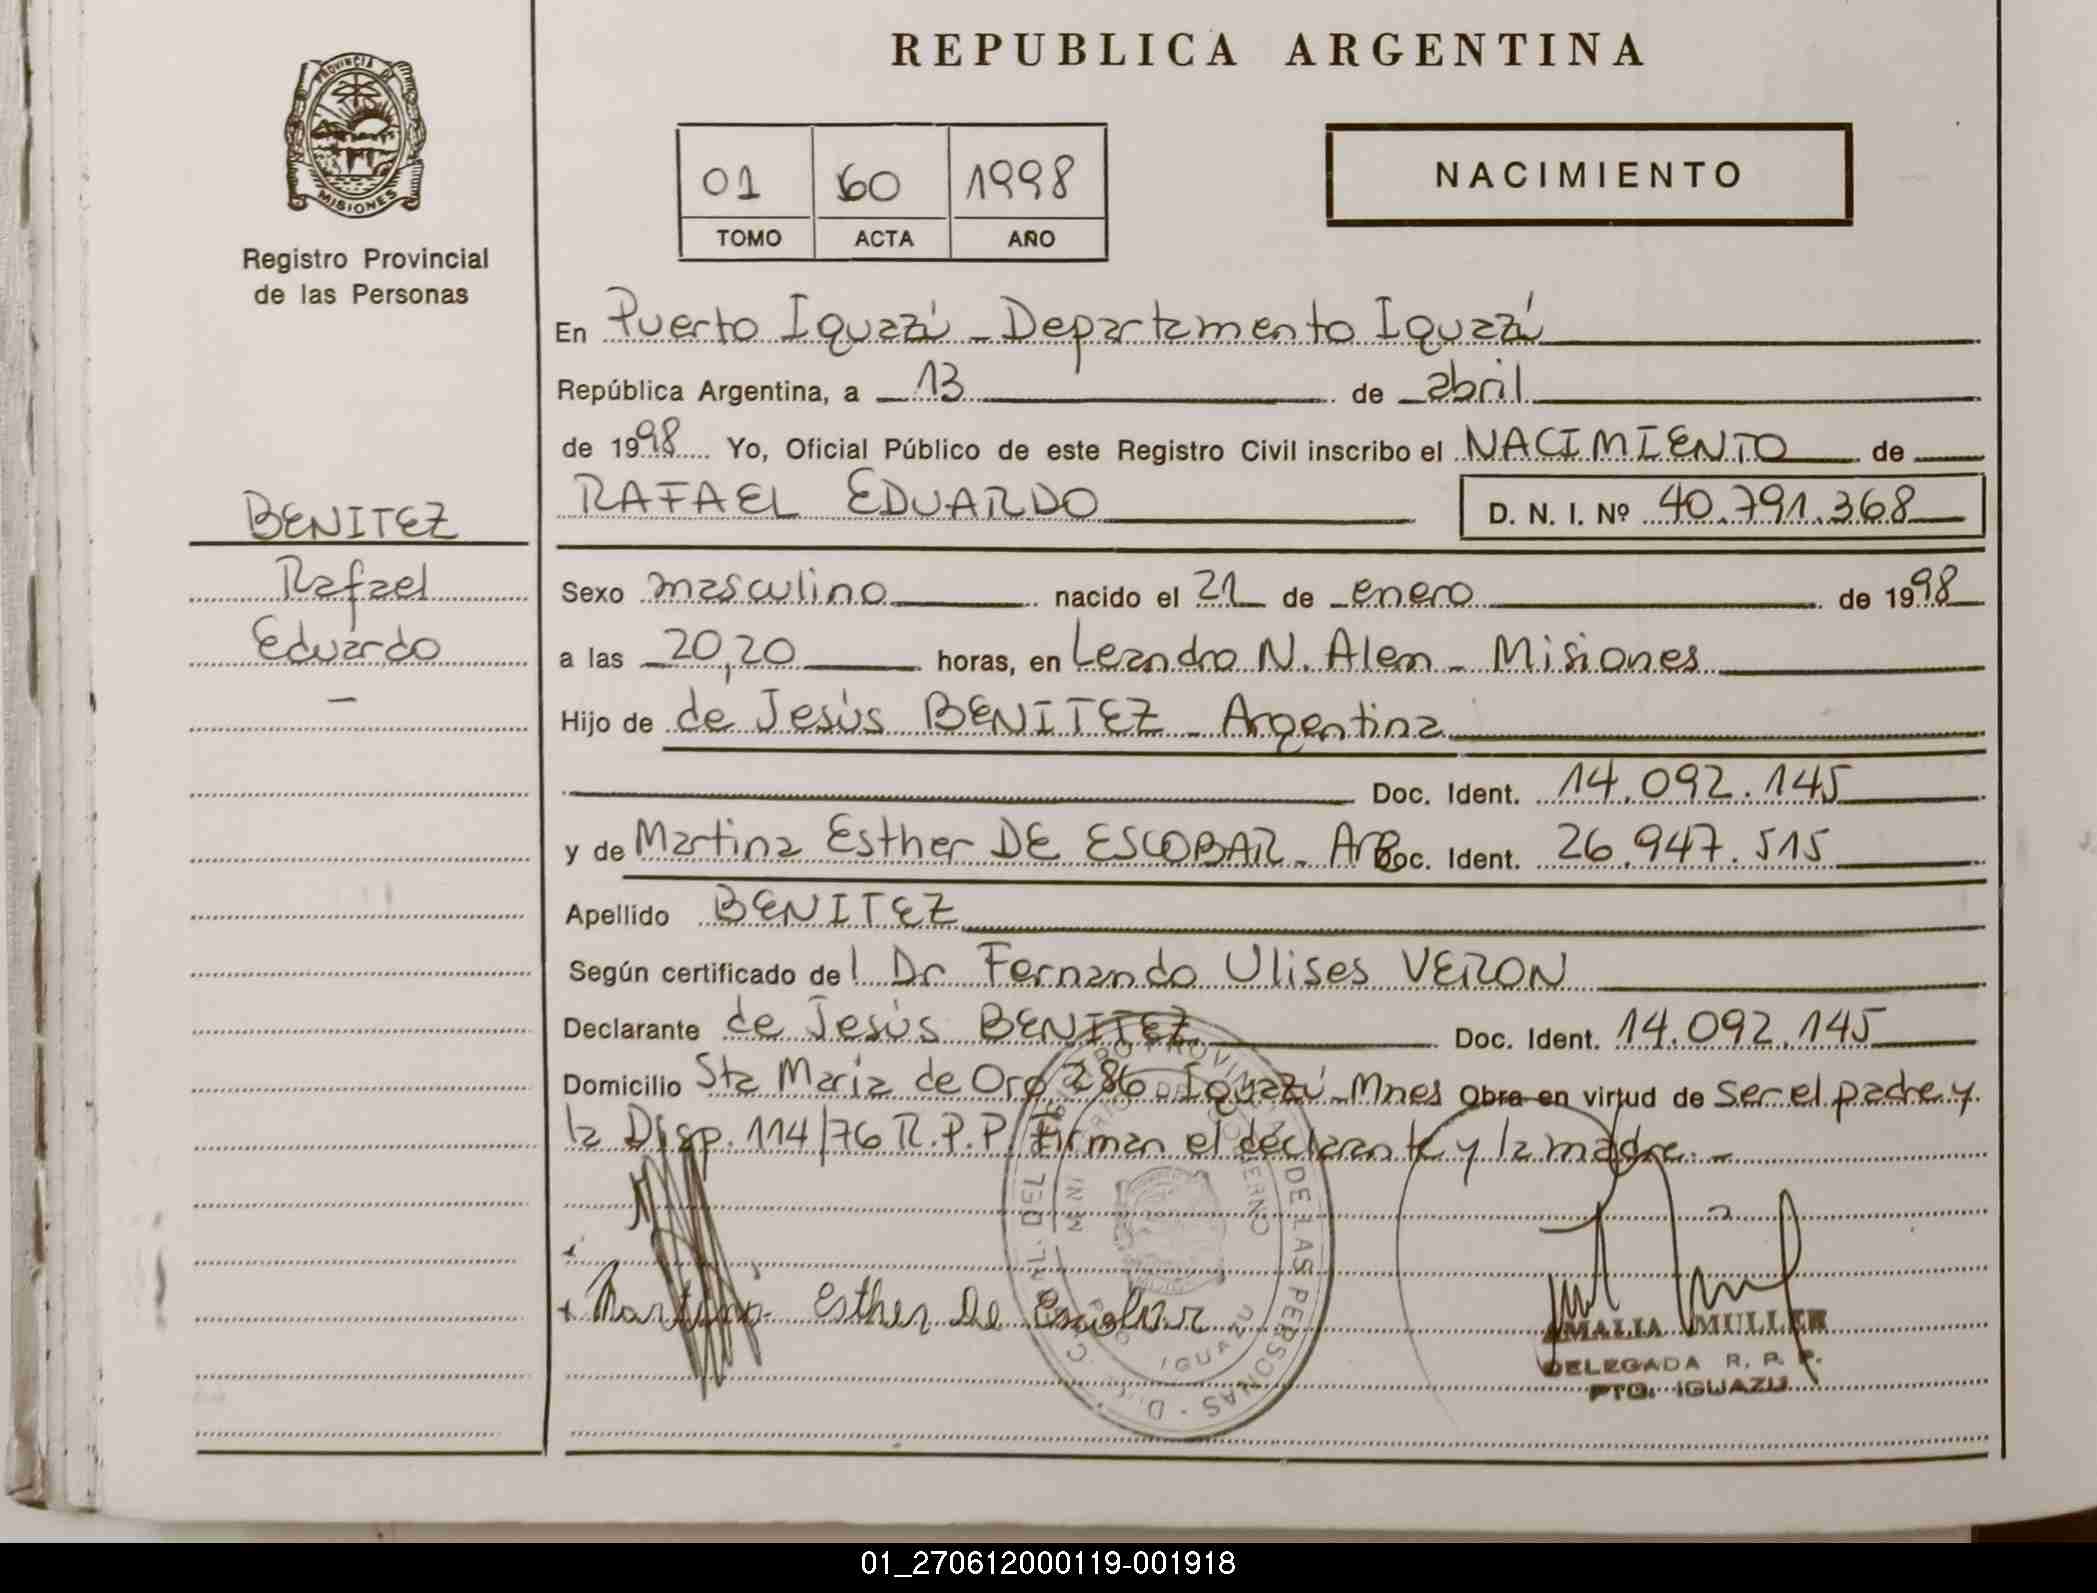 REPUBLICA ARGENTINA
PROVINCIA DE
MISIONES
Registro Provincial
de las Personas
01 60 1998
TOMO ACTA AÑO
NACIMIENTO
En Puerto Iguazú - Departamento Iguazú
República Argentina, a 13 de abril
de 1998 Yo, Oficial Público de este Registro Civil inscribo el NACIMIENTO de
RAFAEL EDUARDO D. N. I. Nº 40.791.368
BENITEZ
Rafael
Eduardo
Sexo masculino nacido el 21 de enero de 1998
a las 20,20 horas, en Leandro N. Alem - Misiones
Hijo de de Jesús BENITEZ - Argentina
Doc. Ident. 14.092.145
y de Martina Esther DE ESCOBAR - Arg Doc. Ident. 26.947.515
Apellido BENITEZ
Según certificado del Dr Fernando Ulises VERON
Declarante de Jesús BENITEZ Doc. Ident. 14.092.145
Domicilio Sta Maria de Oro 286 Iguazú - Mnes Obra en virtud de ser el padre y
la Disp. 114/76 R.P.P. Firman el declarante y la madre. -
Martina Esther De Escobar
AMALIA MULLER
DELEGADA R. P. P.
PTO. IGUAZU
DE LAS PERSONAS
IGUAZU
01_270612000119-001918